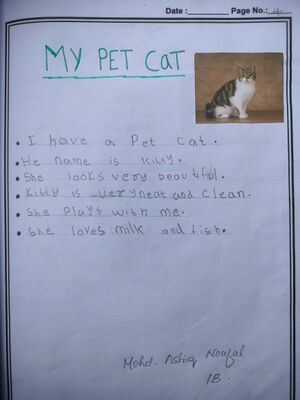 Date : Page No.: 4
MY PET CAT
• I have a Pet cat.
• He name is kitty.
• She looks very beautiful.
• Kitty is very neat and clean.
• She plays with me.
• She loves milk and fish.
Mohd. Ashiq Noufal
1B.